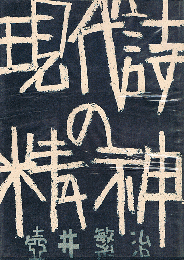 現代詩
の
精神
壺井繁治